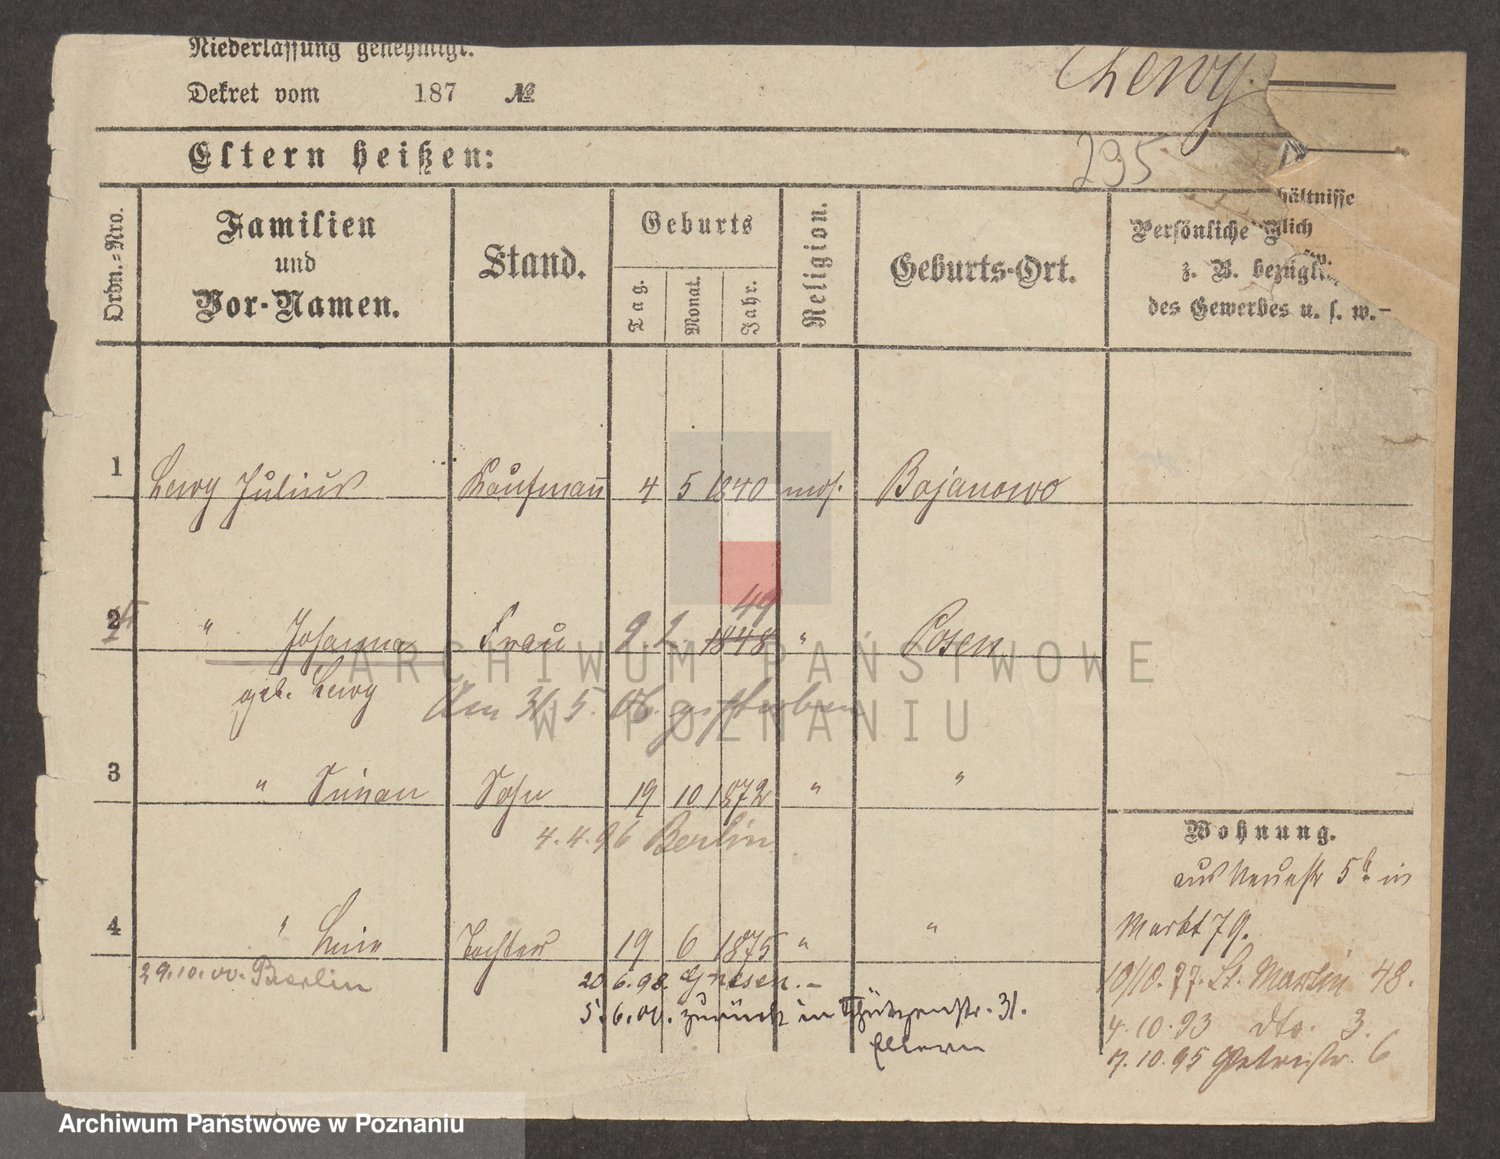 Niederlassung genehmigt.
Dekret vom 187 №
Lewy.
Eltern heißen:
295
Ordn.-Nro.
Familien
und
Vor-Namen.
Stand.
Geburts
Tag.
Monat.
Jahr.
Religion.
Geburts-Ort.
hältnisse
Persönliche lich
z. B. bezügl
des Gewerbes u. s. w.
1 Lewy Julius Kaufmann 4 5 1840 mos. Bojanowo
49
2 " Johanna Frau 9 2 1848 " Posen
geb. Lewy
Am 31. 5. 06. gestorben
3 " Simon Sohn 19 10 1872 " "
4.4.96 Berlin
Wohnung.
aus Neuestr 5 in
Markt 79.
4 " Tochter 19 6 1875 " "
29.10.00. Berlin
20.6.98. Gnesen.-
10/10.77. St. Martin 48.
5.6.00. zurück in Schützenstr. 31.
Eltern
4.10.93 dto. 3.
7.10.95 6
ARCHIWUM PAŃSTWOWE
W POZNANIU
Archiwum Państwowe w Poznaniu